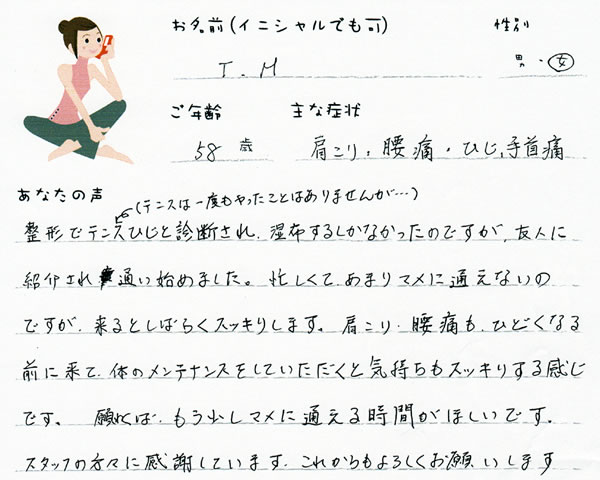 お名前(イニシャルでも可)
性別
T.M
男・女
ご年齢
主な症状
58 歳
肩こり、腰痛・ひじ、手首痛
あなたの声
(テニスは一度もやったことはありませんが…)
整形でテニスひじと診断され、湿布するしかなかったのですが、友人に
紹介され通い始めました。忙しくて、あまりマメに通えないの
ですが、来るとしばらくスッキリします。肩こり、腰痛も、ひどくなる
前に来て、体のメンテナンスをしていただくと気持ちもスッキリする感じ
です。 願わくば、もう少しマメに通える時間がほしいです。
スタッフの方々に感謝しています。これからもよろしくお願いします